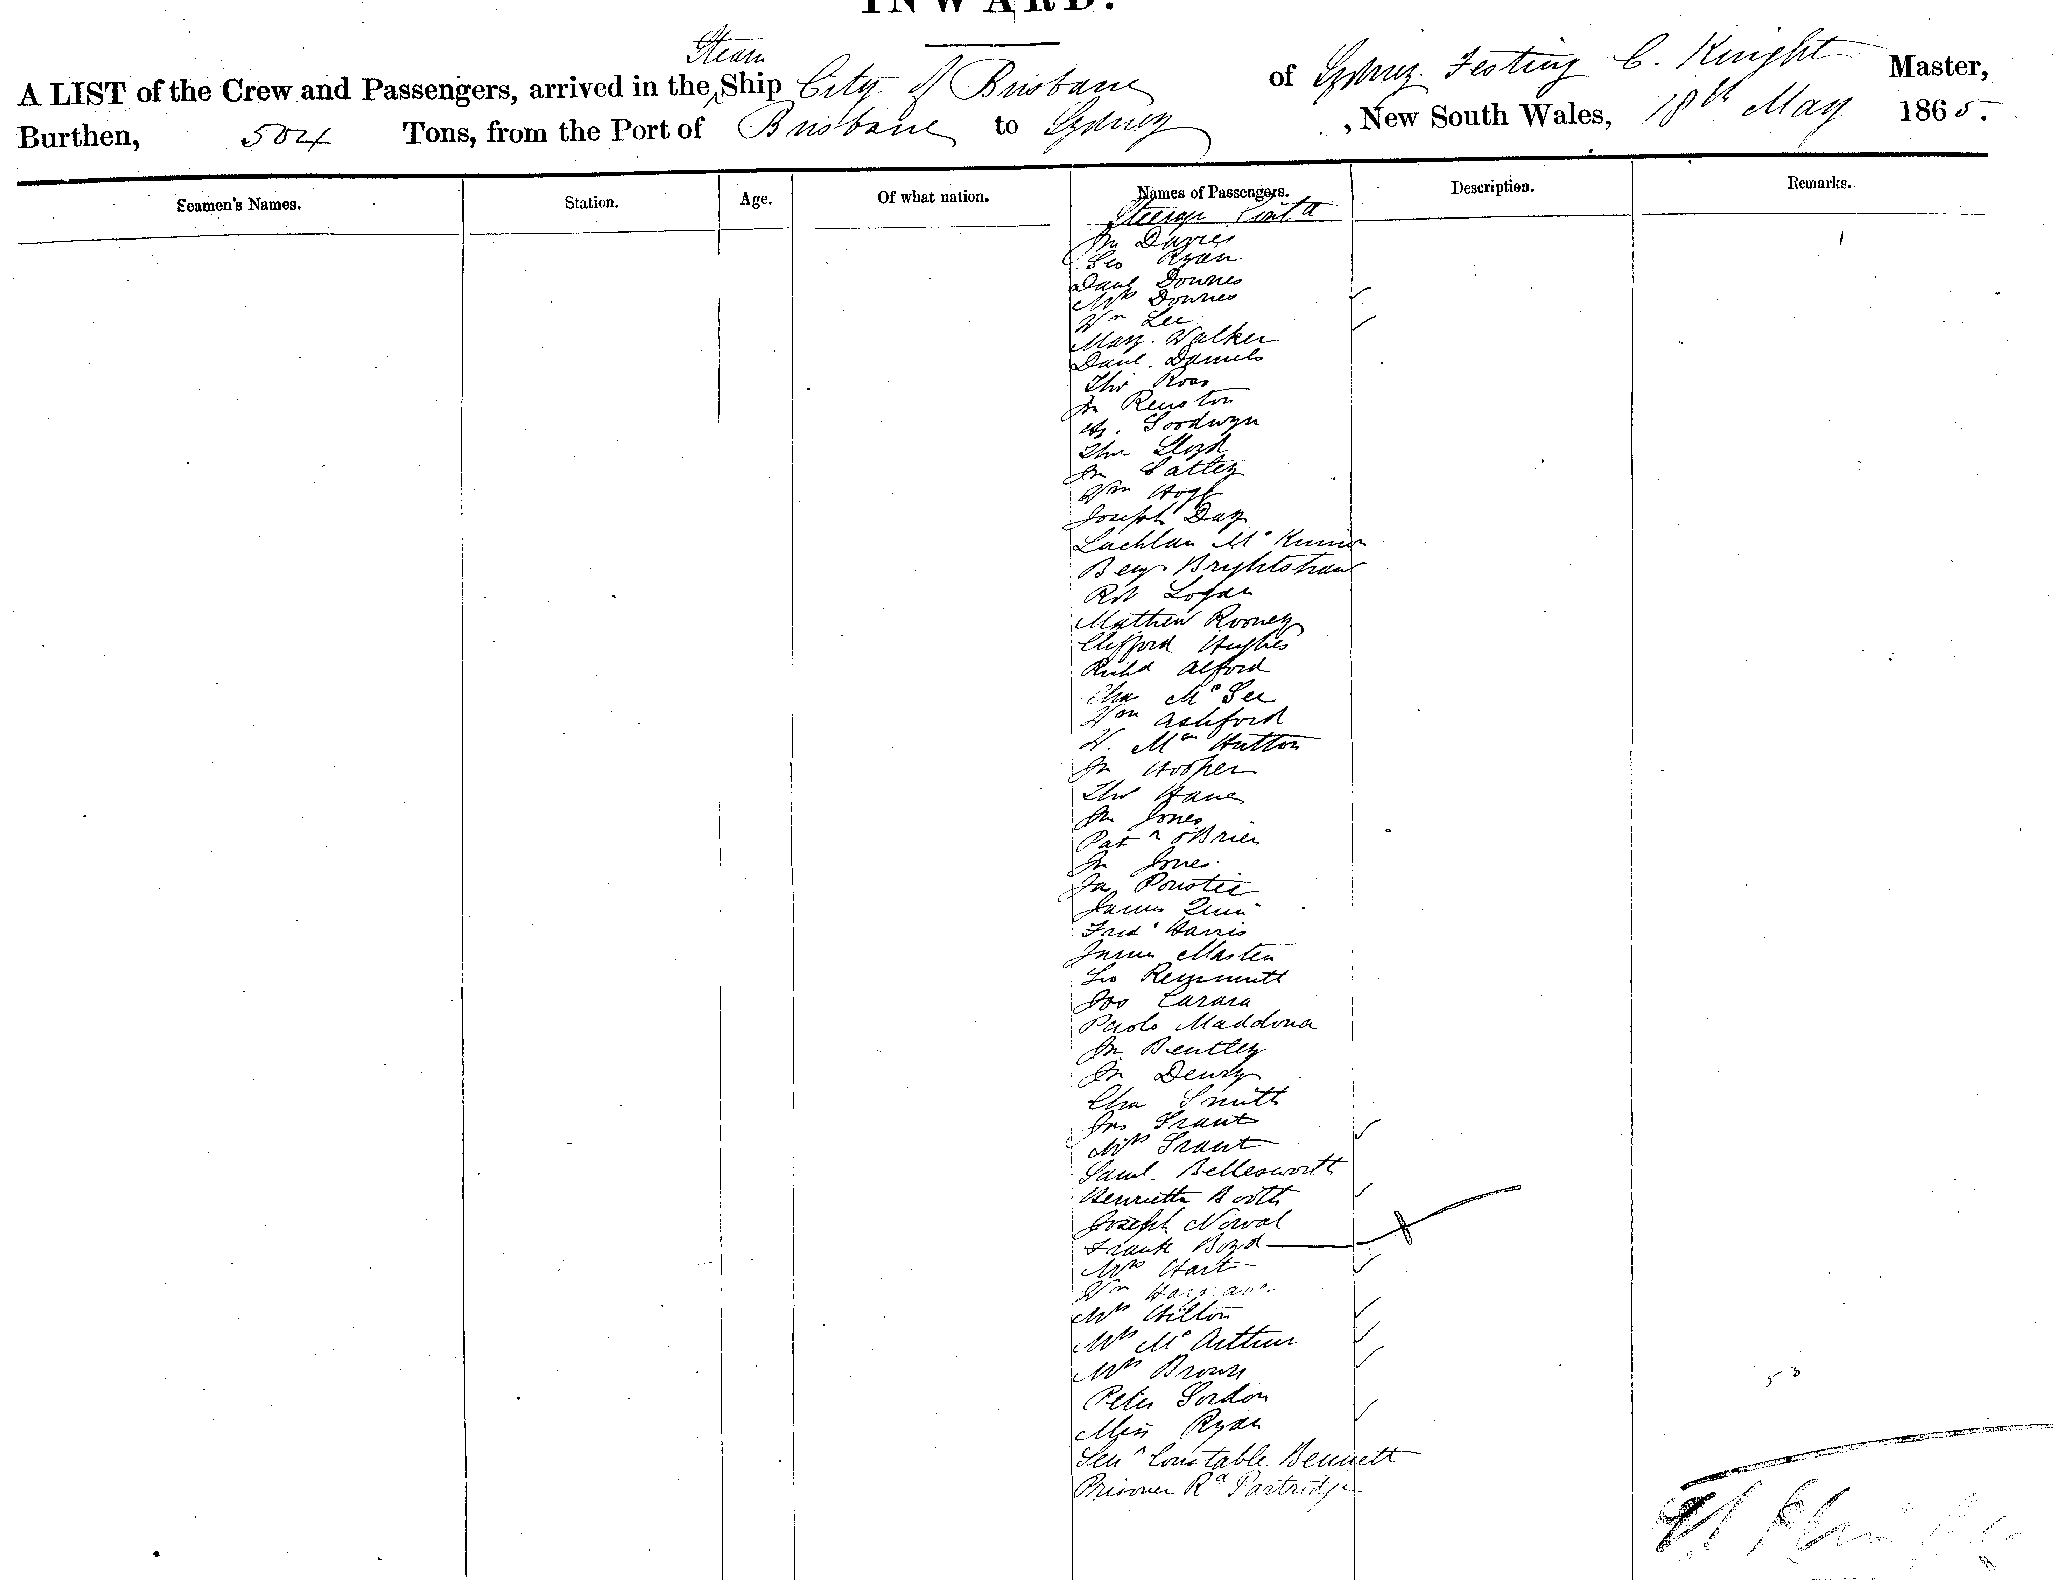 INWARD.
Steam
A LIST of the Crew and Passengers, arrived in the Ship City of Brisbane of Sydney Festing C. Knight Master,
Burthen, 504 Tons, from the Port of Brisbane to Sydney, New South Wales, 18th May 1865.
Seamen's Names. Station. Age. Of what nation. Names of Passengers. Description. Remarks.
Steerage
Jn Davies
Geo Ryan
Danl Downes
Mrs Downes
Wm Lee
Mary Walker
Danl. Daniels
Thos Ross
Jn
Goodwyn
Lloyd
Jn
Wm
Joseph Day
Lachlan Mc
Benj. Brightshaw
Rt Logan
Mathew Rooney
Clifford Hughes
Richd Alford
Chas McGee
Wm Ashford
W. Hutton
Jn Hooper
Thos
Jn Jones
Patk O'Brien
Jn Jones
Jas
James Quin
Fred Harris
James Masten
Geo
Jos
Paolo Maddona
Jn Bentley
Jn
Chas Smith
Jas Grant
Mrs Grant
Saml. Bellesworth
Henrietta Booth
Joseph Noval
Frank Boyd
Mrs Hart
Wm
Mrs Hilton
Mrs McArthur
Mrs Brown
Peter Gordon
Miss Ryan
53
Senr Constable Bennett
Prisoner Rd Partridge